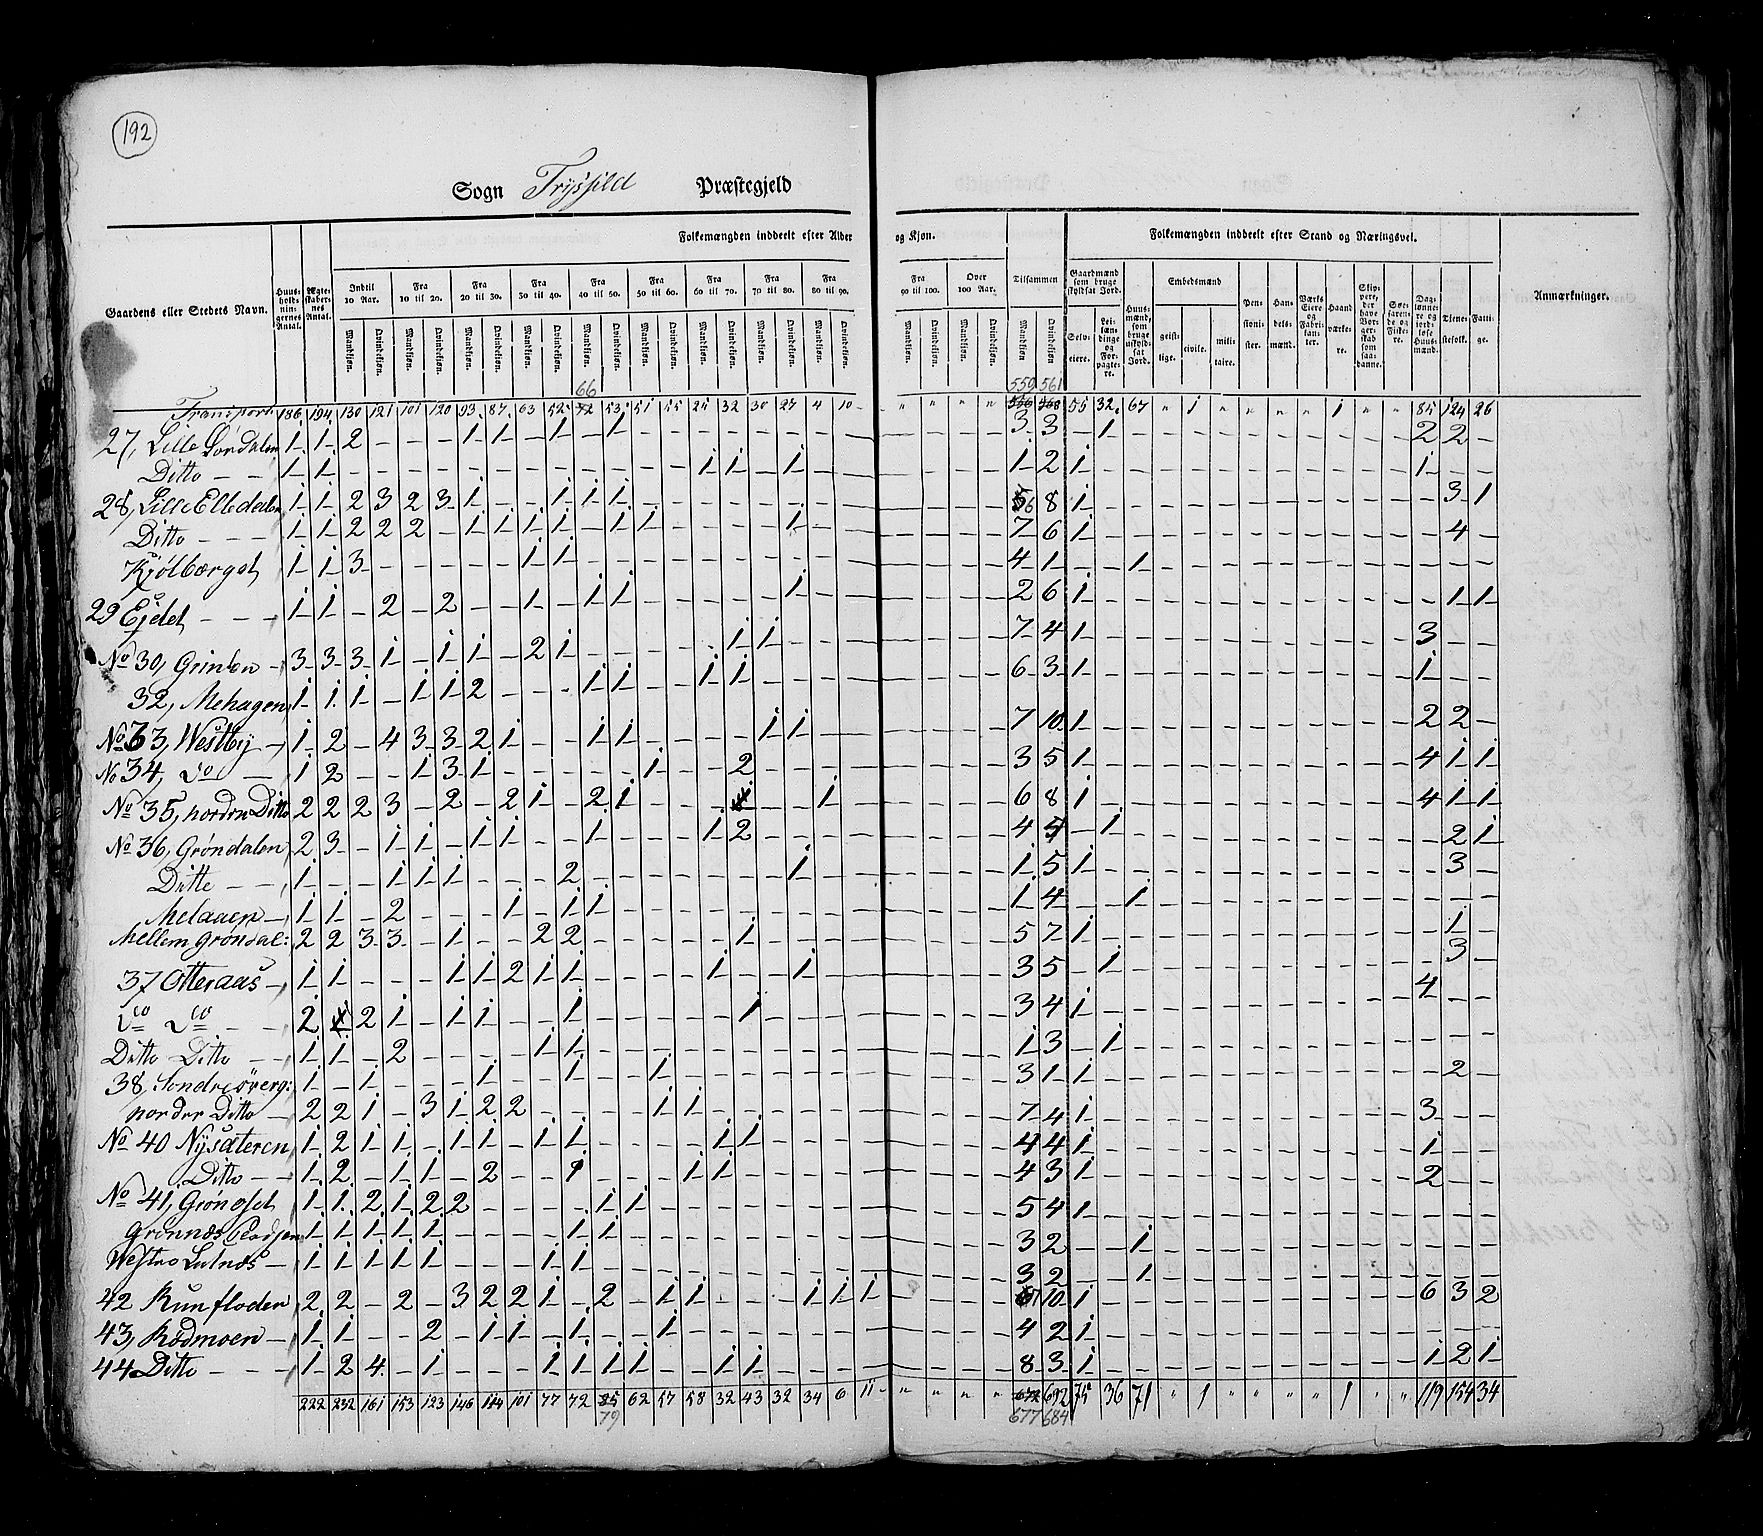 192
Sogn Trysfild Præstegjeld
Gaardens eller Stedets Navn.
Huus-holdningernes Antal.
Ægteskabernes Antal.
Folkemængden inddeelt efter Alder og Kjøn.
Indtil 10 Aar. Fra 10 til 20. Fra 20 til 30. Fra 30 til 40. Fra 40 til 50. Fra 50 til 60. Fra 60 til 70. Fra 70 til 80. Fra 80 til 90. Fra 90 til 100. Over 100 Aar. Tilsammen
Mandkjøn. Qvindekjøn.
Folkemængden inddeelt efter Stand og Næringsvei.
Gaardmænd som bruge skyldsat Jord.
Selveiere. Leilændinge og Forpagtere.
Huusmænd, som bruge uskyldsat Jord.
Embedsmænd
geistlige. civile. militaire.
Pensionister. Handelsmænd. Værks Eiere og Fabrikanter. Haandværkere.
Skippere, der have Borgerskab som saadanne.
Søefarende og Fiskere.
Daglønnere og jordløse Huusmænd. Tienestefolk. Fattige.
Anmærkninger.
66 559 561
Transport 186 194 130 121 101 120 93 87 63 52 72 53 51 55 25 32 30 27 4 10 " " " " 556 568 55 32 67 " 1 " " " " 1 " " 85 124 26
27, Lille Sørdalen 1 1 2 - - - 1 1 - 1 - 1 - 3 3 - 1 - 2 2 -
Ditto 1 1 - 1 1 - 1 - 1 2 1 - 1 -
28, Lille Elledalen 1 1 2 3 2 3 1 - - 1 1 1 - 6 8 1 - 3 1
Ditto 1 1 2 2 2 - 1 1 1 1 - 1 1 - 1 - 7 6 1 - 4 -
Kjølberget 1 1 3 - 1 1 - 4 1 - - 1 -
29 Ejdet 1 1 - 2 - 2 - - 1 - 1 1 - 1 - 2 6 1 - 1 1
No 30, Grinden 3 3 3 1 - 1 1 - 2 1 - 1 1 - 7 4 1 - 3 - -
32, Mehagen 1 1 1 - 1 1 2 - - - 1 1 - - 1 1 - 6 3 1 - 1 - -
No 33, Westby 1 2 - 4 3 3 2 1 - - 1 1 - 1 1 - 7 10 1 - 2 2 -
No 34, do 1 2 - - 1 3 1 - 1 - - 2 - 3 5 1 - 4 1 1
No 35, nordre Ditto 2 2 2 3 - 2 - 2 1 - 2 1 - 1 - 6 8 1 - 4 1 1
No 36, Grøndalen 2 3 - 1 1 - 1 1 - - 1 - 1 2 - 4 5 - 1 - 2 1
Ditto 1 - - 1 1 1 - - - 2 - 1 - 1 5 1 - 3 -
Melaaen 1 1 - 2 - - - 1 - 1 1 - 1 4 - - 1 -
Mellem Grøndal: 2 2 3 3 - 1 - - 2 2 - 1 - 5 7 1 - 1 -
37 Otteraas 1 1 - - - 1 1 2 1 1 - 1 - - 1 - 3 5 - 1 - 3 -
do do 2 2 1 - 1 1 - - 1 - 1 - 3 4 1 - 4 - -
Ditto Ditto 1 1 - 2 - 1 1 - 1 3 - 1 -
38, Søndre 1 - 1 - - - 1 - - 1 - - 1 - 3 1 1 - 2 -
norder Ditto 2 2 1 - 3 1 2 2 - 1 1 - 7 4 1 - 3 - -
No 40 Nysæteren 1 2 1 1 - 1 1 - 1 1 - 1 1 - 4 4 1 - 1 - -
Ditto 1 2 - 1 1 - 2 - - 1 - 1 1 - 4 3 1 - 2 - -
No 41, Grønoset 1 1 2 1 2 2 - 1 1 - 5 4 1 -
Grønnæs Pladsen 1 1 1 1 1 - 1 1 - 3 2 - - 1 -
Westre Lutnæs 1 1 1 1 1 - 1 1 - 3 2 - - 1 -
42 Runfloden 2 2 - 2 - 3 2 2 1 - 2 - 1 1 - 1 1 1 - 10 1 - 6 3 2
43, Rødmoen 1 1 - - 2 - 1 1 - 1 - - 1 - 4 2 1 -
44 Ditto 1 2 4 - 1 - 1 1 1 1 - - 1 1 - 8 3 1 - 1 2 1
222 232 161 153 123 146 114 101 77 72 85 62 57 58 32 43 32 34 6 11 " " " " 672 692 75 36 71 " 1 " " " " 1 " " 119 154 34
79 677 684